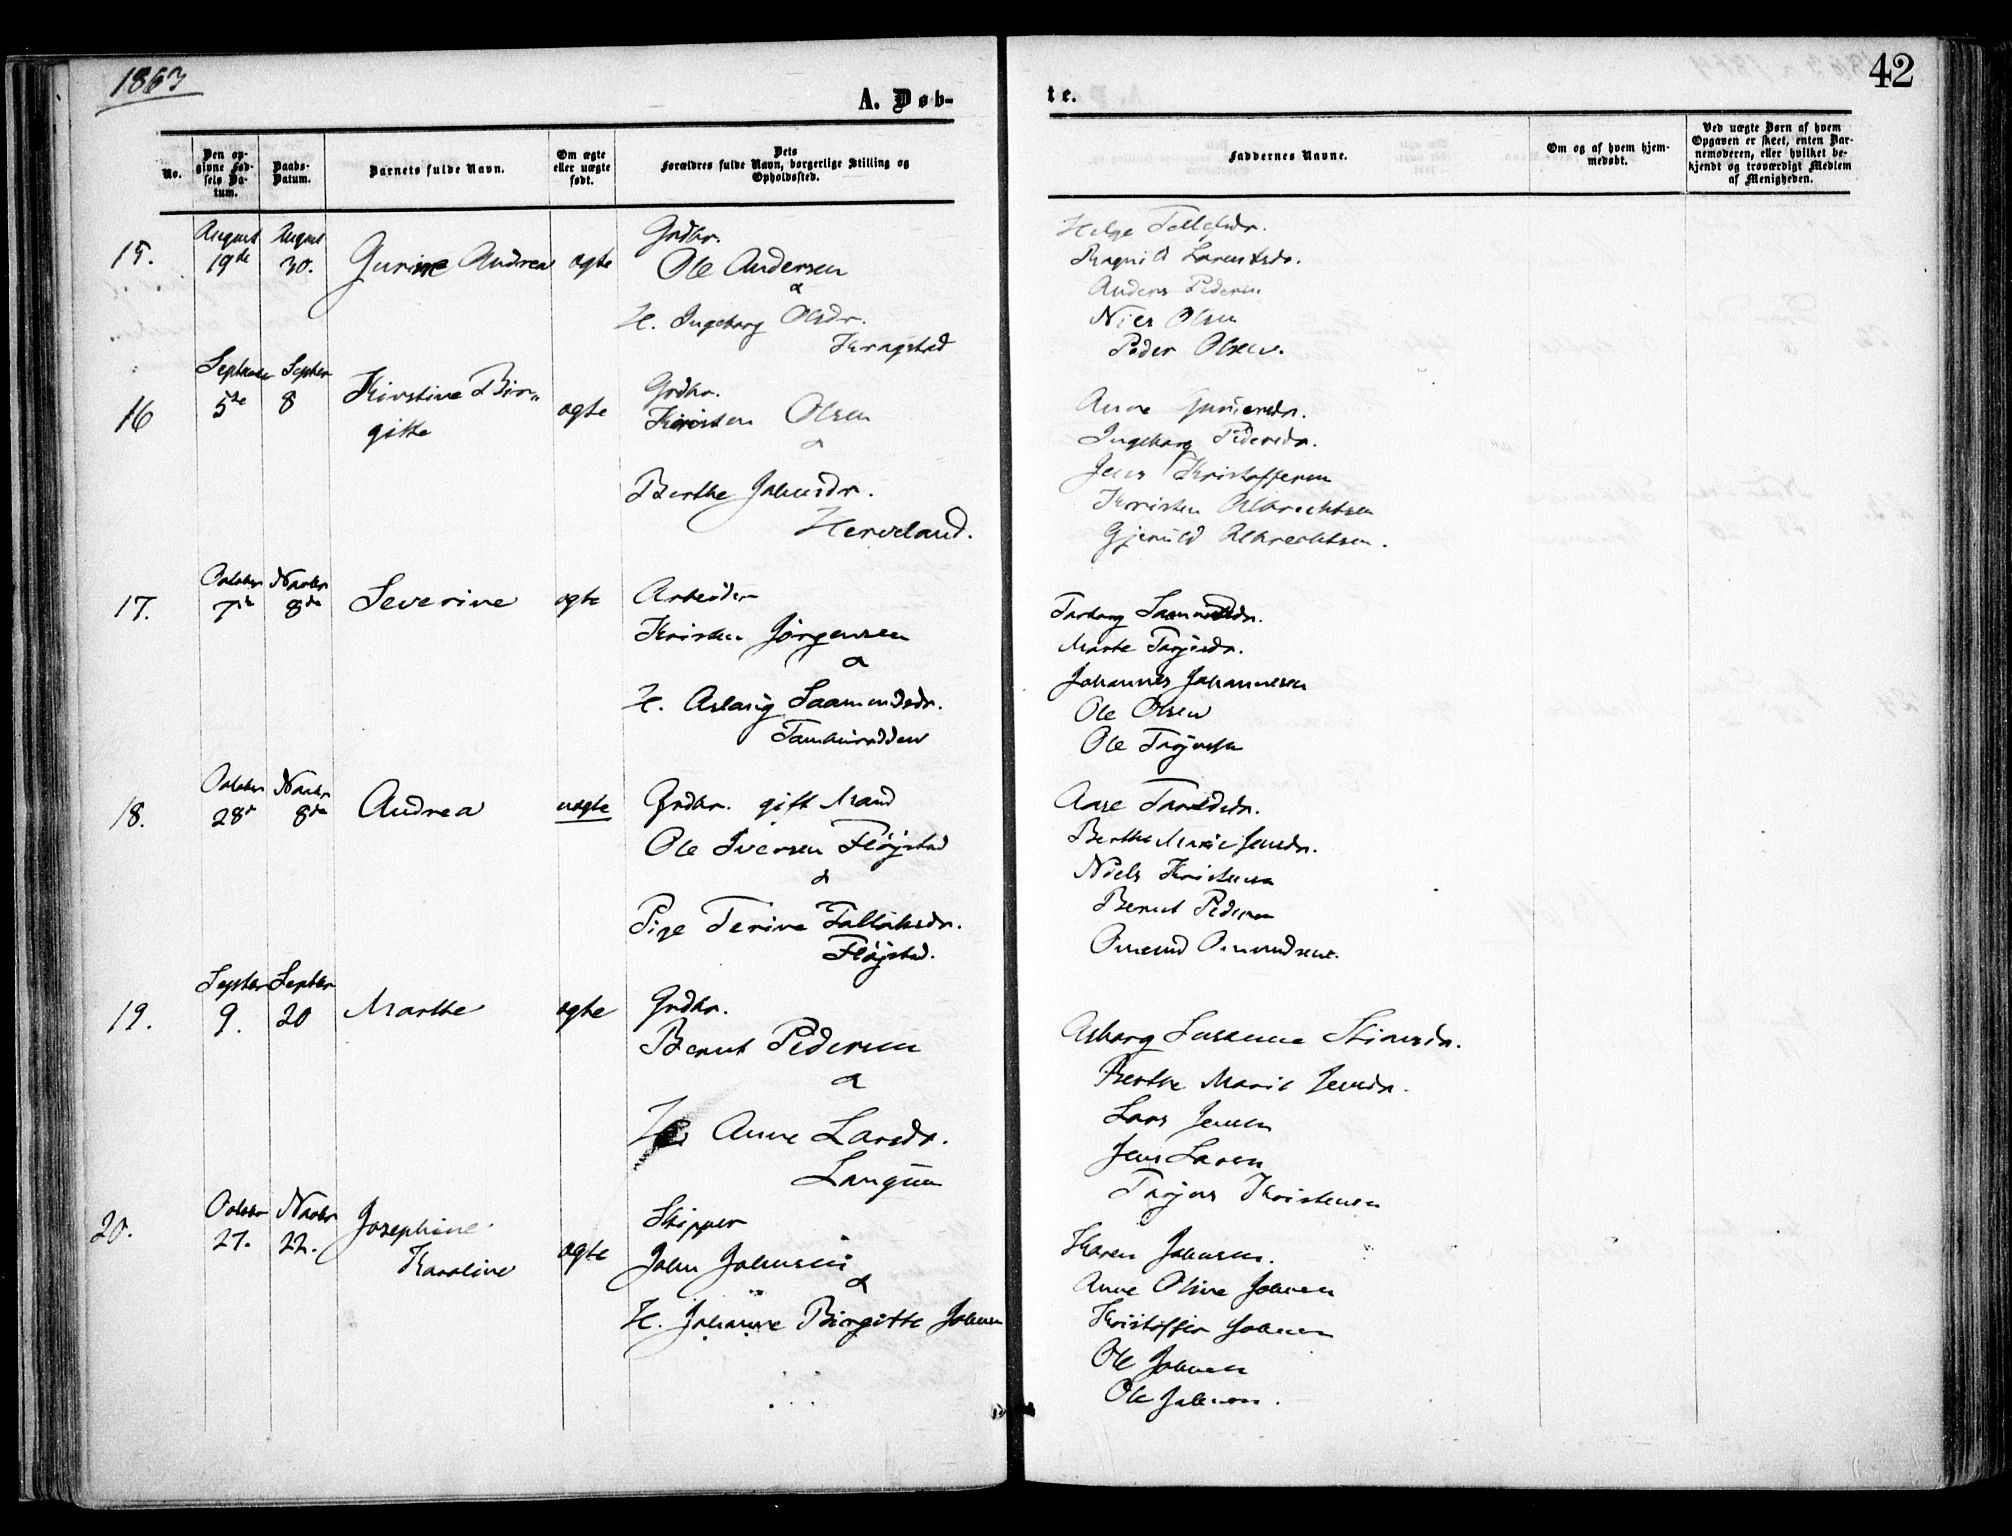 1863
A. Døb-
te.
42
No.
Den op-
givne Fød-
sels Da-
tum.
Daabs-
Datum.
Barnets fulde Navn.
Om ægte
eller uægte
født.
Dets
Forældres fulde Navn, borgerlige Stilling og
Opholdssted.
Faddernes Navne.
Om og af hvem hjem-
medøbt.
Ved uægte Børn af hvem
Opgaven er skeet, enten Bar-
nemoderen, eller hvilket be-
kjendt og troværdigt Medlem
af Menigheden.
15.
August
19de
August
30.
Gurine Andrea
ægte
Grdbr.
Ole Andersen
&
H. Ingeborg Olsdr.
Kragstad
Helge
Ragnild Larentsdr.
Anders Pedersen
Niels Olsen
Peder Olsen.
16
September
5te
Septbr
8
Kirstine Bir„
gitte
ægte
Grdbr.
Kirsten Olsen
&
Berthe Johnsdr.
Herveland.
Anne
Ingeborg Pedersdr.
Jens Kristoffersen
Kristen Albrechtsen
Gjeruld Albrechtsen.
17.
October
7de
Novbr
8de
Severine
ægte
Arbeider
Kristen Jørgensen
&
H. Aslaug Saamundsdr.
Torborg Saamundsdr.
Marte Tarjesdr.
Johannes Johannesen
Ole Olsen
Ole Tarjesen
18.
October
28de
Novbr
8de
Andrea
uægte
Grdbr. gift Mand
Ole Iversen Fløjstad
&
Pige Terine Tallaksdr.
Fløjstad.
Aase Taraldsdr.
Berthe Marie Jensdr.
Niels Kristensen
Bernt Pedersen
Omund Omundsen.
19.
Septbr
9.
Septbr
20
Marthe
ægte
Grdbr.
Bernt Pedersen
&
H. Anne Larsdr.
Langum
Asborg Susanne
Berthe Marie Jensdr.
Lars Jensen
Jens Larsen
Tarjus Kristensen
20.
Octobr
27.
Novbr
22.
Josephine
Karoline
ægte
Skipper
John Johnsen
&
H. Johanne Birgitte Johnsen
Karen Johnsen.
Anne Oline Johnsen
Kristoffer Johnsen
Ole Johnsen
Ole Johnsen.